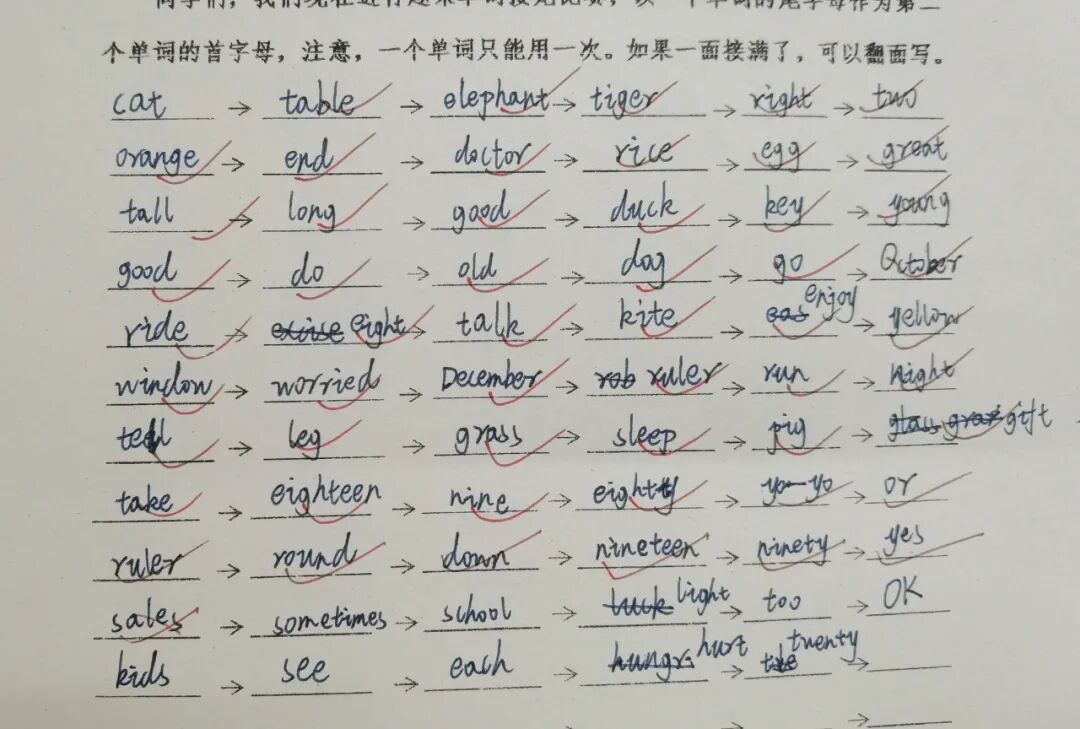 同学们，我们现在进行趣味单词接龙比赛，以一个单词的尾字母作为第二
个单词的首字母，注意，一个单词只能用一次。如果一面接满了，可以翻面写。
cat → table → elephant → tiger → right → two
orange → end → doctor → rice → egg → great
tall → long → good → duck → key → young
good → do → old → dog → go → October
ride → eight → talk → kite → enjoy → yellow
window → worried → December → ruler → run → night
tell → leg → grass → sleep → pig → gift
take → eighteen → nine → eighty → yo-yo → or
ruler → round → down → nineteen → ninety → yes
sales → sometimes → school → light → too → OK
kids → see → each → hurt → twenty →